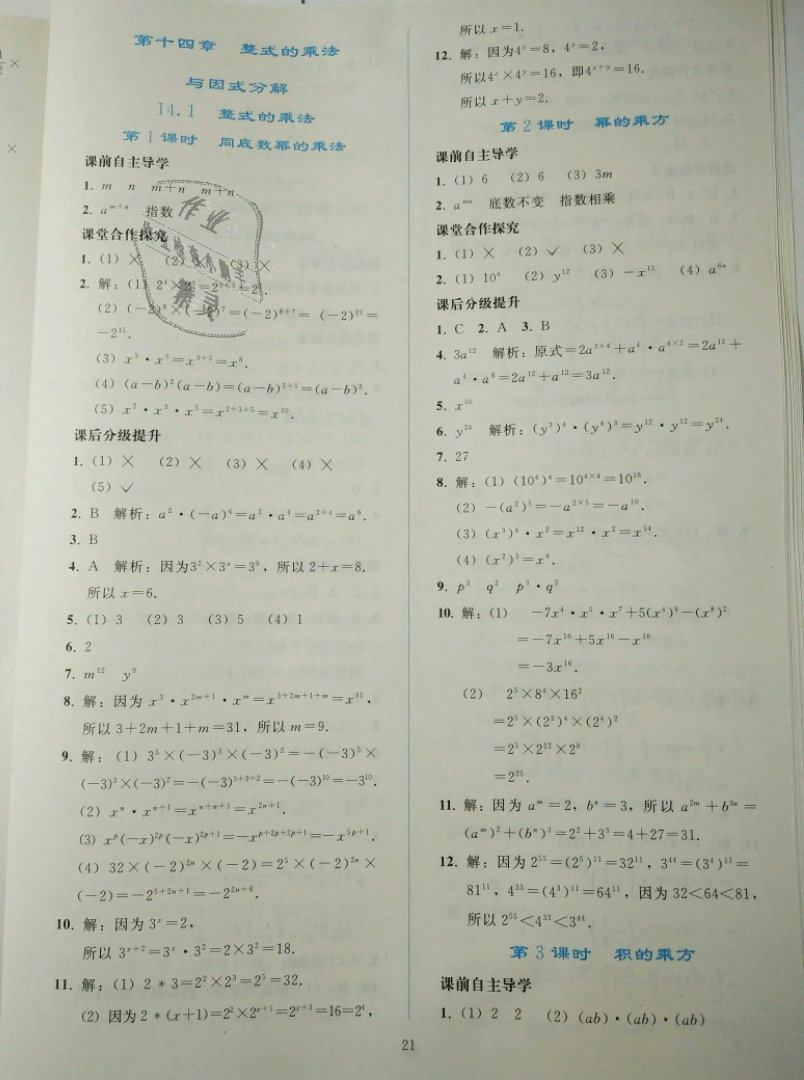 第十四章 整式的乘法
与因式分解
14.1 整式的乘法
第1课时 同底数幂的乘法
课前自主导学
1. m n m+n m+n
2. a^{m+n} 指数
课堂合作探究
1. (1) × (2) × (3) ×
2. 解:(1) 2^4×
(2) (-2)^8×(-2)^7=(-2)^{8+7}=(-2)^{15}=
-2^{15}.
(3) x^3·x^5=x^{3+5}=x^8.
(4) (a-b)^2(a-b)=(a-b)^{2+1}=(a-b)^3.
(5) x^2·x^3·x^5=x^{2+3+5}=x^{10}.
课后分级提升
1. (1) × (2) × (3) × (4) ×
(5) ✓
2. B 解析:a^2·(-a)^4=a^2·a^4=a^{2+4}=a^6.
3. B
4. A 解析:因为3^2×3^x=3^8,所以2+x=8.
所以x=6.
5. (1) 3 (2) 3 (3) 5 (4) 1
6. 2
7. m^{12} y^9
8. 解:因为x^3·x^{2m+1}·x^m=x^{3+2m+1+m}=x^{31},
所以3+2m+1+m=31,所以m=9.
9. 解:(1) 3^5×(-3)^3×(-3)^2=-(-3)^5×
(-3)^3×(-3)^2=-(-3)^{5+3+2}=-(-3)^{10}=-3^{10}.
(2) x^n·x^{n+1}=x^{n+n+1}=x^{2n+1}.
(3) x^p(-x)^{2p}(-x)^{2p+1}=-x^{p+2p+2p+1}=-x^{5p+1}.
(4) 32×(-2)^{2n}×(-2)=2^5×(-2)^{2n}×
(-2)=-2^{5+2n+1}=-2^{2n+6}.
10. 解:因为3^x=2,
所以3^{x+2}=3^x·3^2=2×3^2=18.
11. 解:(1) 2*3=2^2×2^3=2^5=32.
(2) 因为2*(x+1)=2^2×2^{x+1}=2^{x+3}=16=2^4,
所以x=1.
12. 解:因为4^x=8,4^y=2,
所以4^x×4^y=16,即4^{x+y}=16.
所以x+y=2.
第2课时 幂的乘方
课前自主导学
1. (1) 6 (2) 6 (3) 3m
2. a^{mn} 底数不变 指数相乘
课堂合作探究
1. (1) × (2) ✓ (3) ×
2. (1) 10^6 (2) y^{12} (3) -x^{15} (4) a^{6n}
课后分级提升
1. C 2. A 3. B
4. 3a^{12} 解析:原式=2a^{3×4}+a^4·a^{4×2}=2a^{12}+
a^4·a^8=2a^{12}+a^{12}=3a^{12}.
5. x^{10}
6. y^{24} 解析:(y^3)^4·(y^4)^3=y^{12}·y^{12}=y^{24}.
7. 27
8. 解:(1) (10^4)^4=10^{4×4}=10^{16}.
(2) -(a^2)^5=-a^{2×5}=-a^{10}.
(3) (x^3)^4·x^2=x^{12}·x^2=x^{14}.
(4) (x^2)^3=x^6.
9. p^3 q^2 p^3·q^2
10. 解:(1) -7x^4·x^5·x^7+5(x^4)^4-(x^8)^2
=-7x^{16}+5x^{16}-x^{16}
=-3x^{16}.
(2) 2^5×8^4×16^2
=2^5×(2^3)^4×(2^4)^2
=2^5×2^{12}×2^8
=2^{25}.
11. 解:因为a^m=2,b^n=3,所以a^{2m}+b^{3n}=
(a^m)^2+(b^n)^3=2^2+3^3=4+27=31.
12. 解:因为2^{55}=(2^5)^{11}=32^{11},3^{44}=(3^4)^{11}=
81^{11},4^{33}=(4^3)^{11}=64^{11},因为32<64<81,
所以2^{55}<4^{33}<3^{44}.
第3课时 积的乘方
课前自主导学
1. (1) 2 2 (2) (ab)·(ab)·(ab)
21